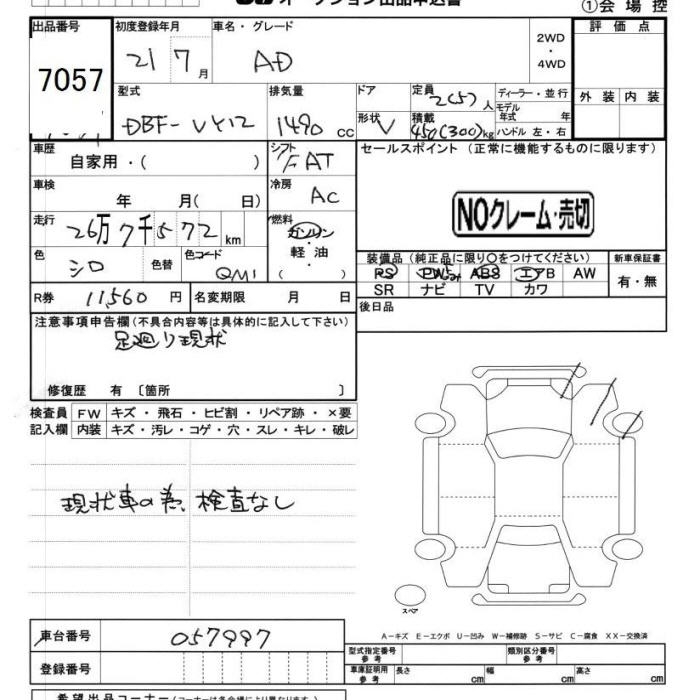 オークション出品申込書
①会場控
出品番号 初度登録年月 車名・グレード 評価点
7057 21 7月 AD 2WD・4WD
外装 内装
型式 排気量 ドア 定員 2(5)人 ディーラー・並行
DBF-VY12 1490cc 形状 V 積載 450(300)kg モデル年式 年 ハンドル 左・右
車歴 自家用・( ) シフト FAT セールスポイント (正常に機能するものに限ります)
車検 年 月( 日) 冷房 AC
NOクレーム・売切
走行 26万7千572km 燃料 ガソリン・軽油・( )
色 シロ 色替 色コード QM1
装備品(純正品に限り○をつけてください) 新車保証書
PS PW ABS エアB AW 有・無
SR ナビ TV カワ
R券 11,560円 名変期限 月 日 後日品
注意事項申告欄(不具合内容等は具体的に記入して下さい)
足廻り現状
修復歴 有〔箇所 〕
検査員 FW キズ・飛石・ヒビ割・リペア跡・×要
記入欄 内装 キズ・汚レ・コゲ・穴・スレ・キレ・破レ
現状車の為、検査なし
スペア
A-キズ E-エクボ U-凹み W-補修跡 S-サビ C-腐食 XX-交換済
車台番号 057997
型式指定番号 参考 類別区分番号 参考
登録番号 車庫証明用 参考 長さ cm 幅 cm 高さ cm
希望出品コーナー(コーナーは各会場により異なります。)